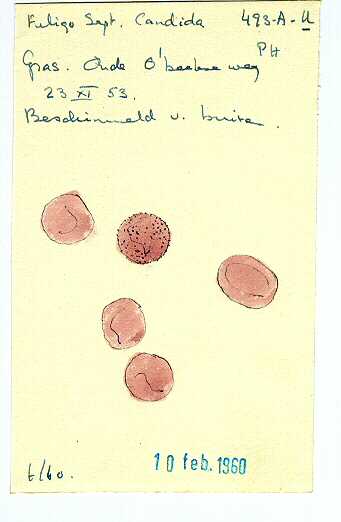 Fuligo Sept. Candida 493-A-U
PH
Gras. Oude O'beekse weg
23 XI 53.
Beschimmeld v. buiten
t/60.
10 feb. 1960